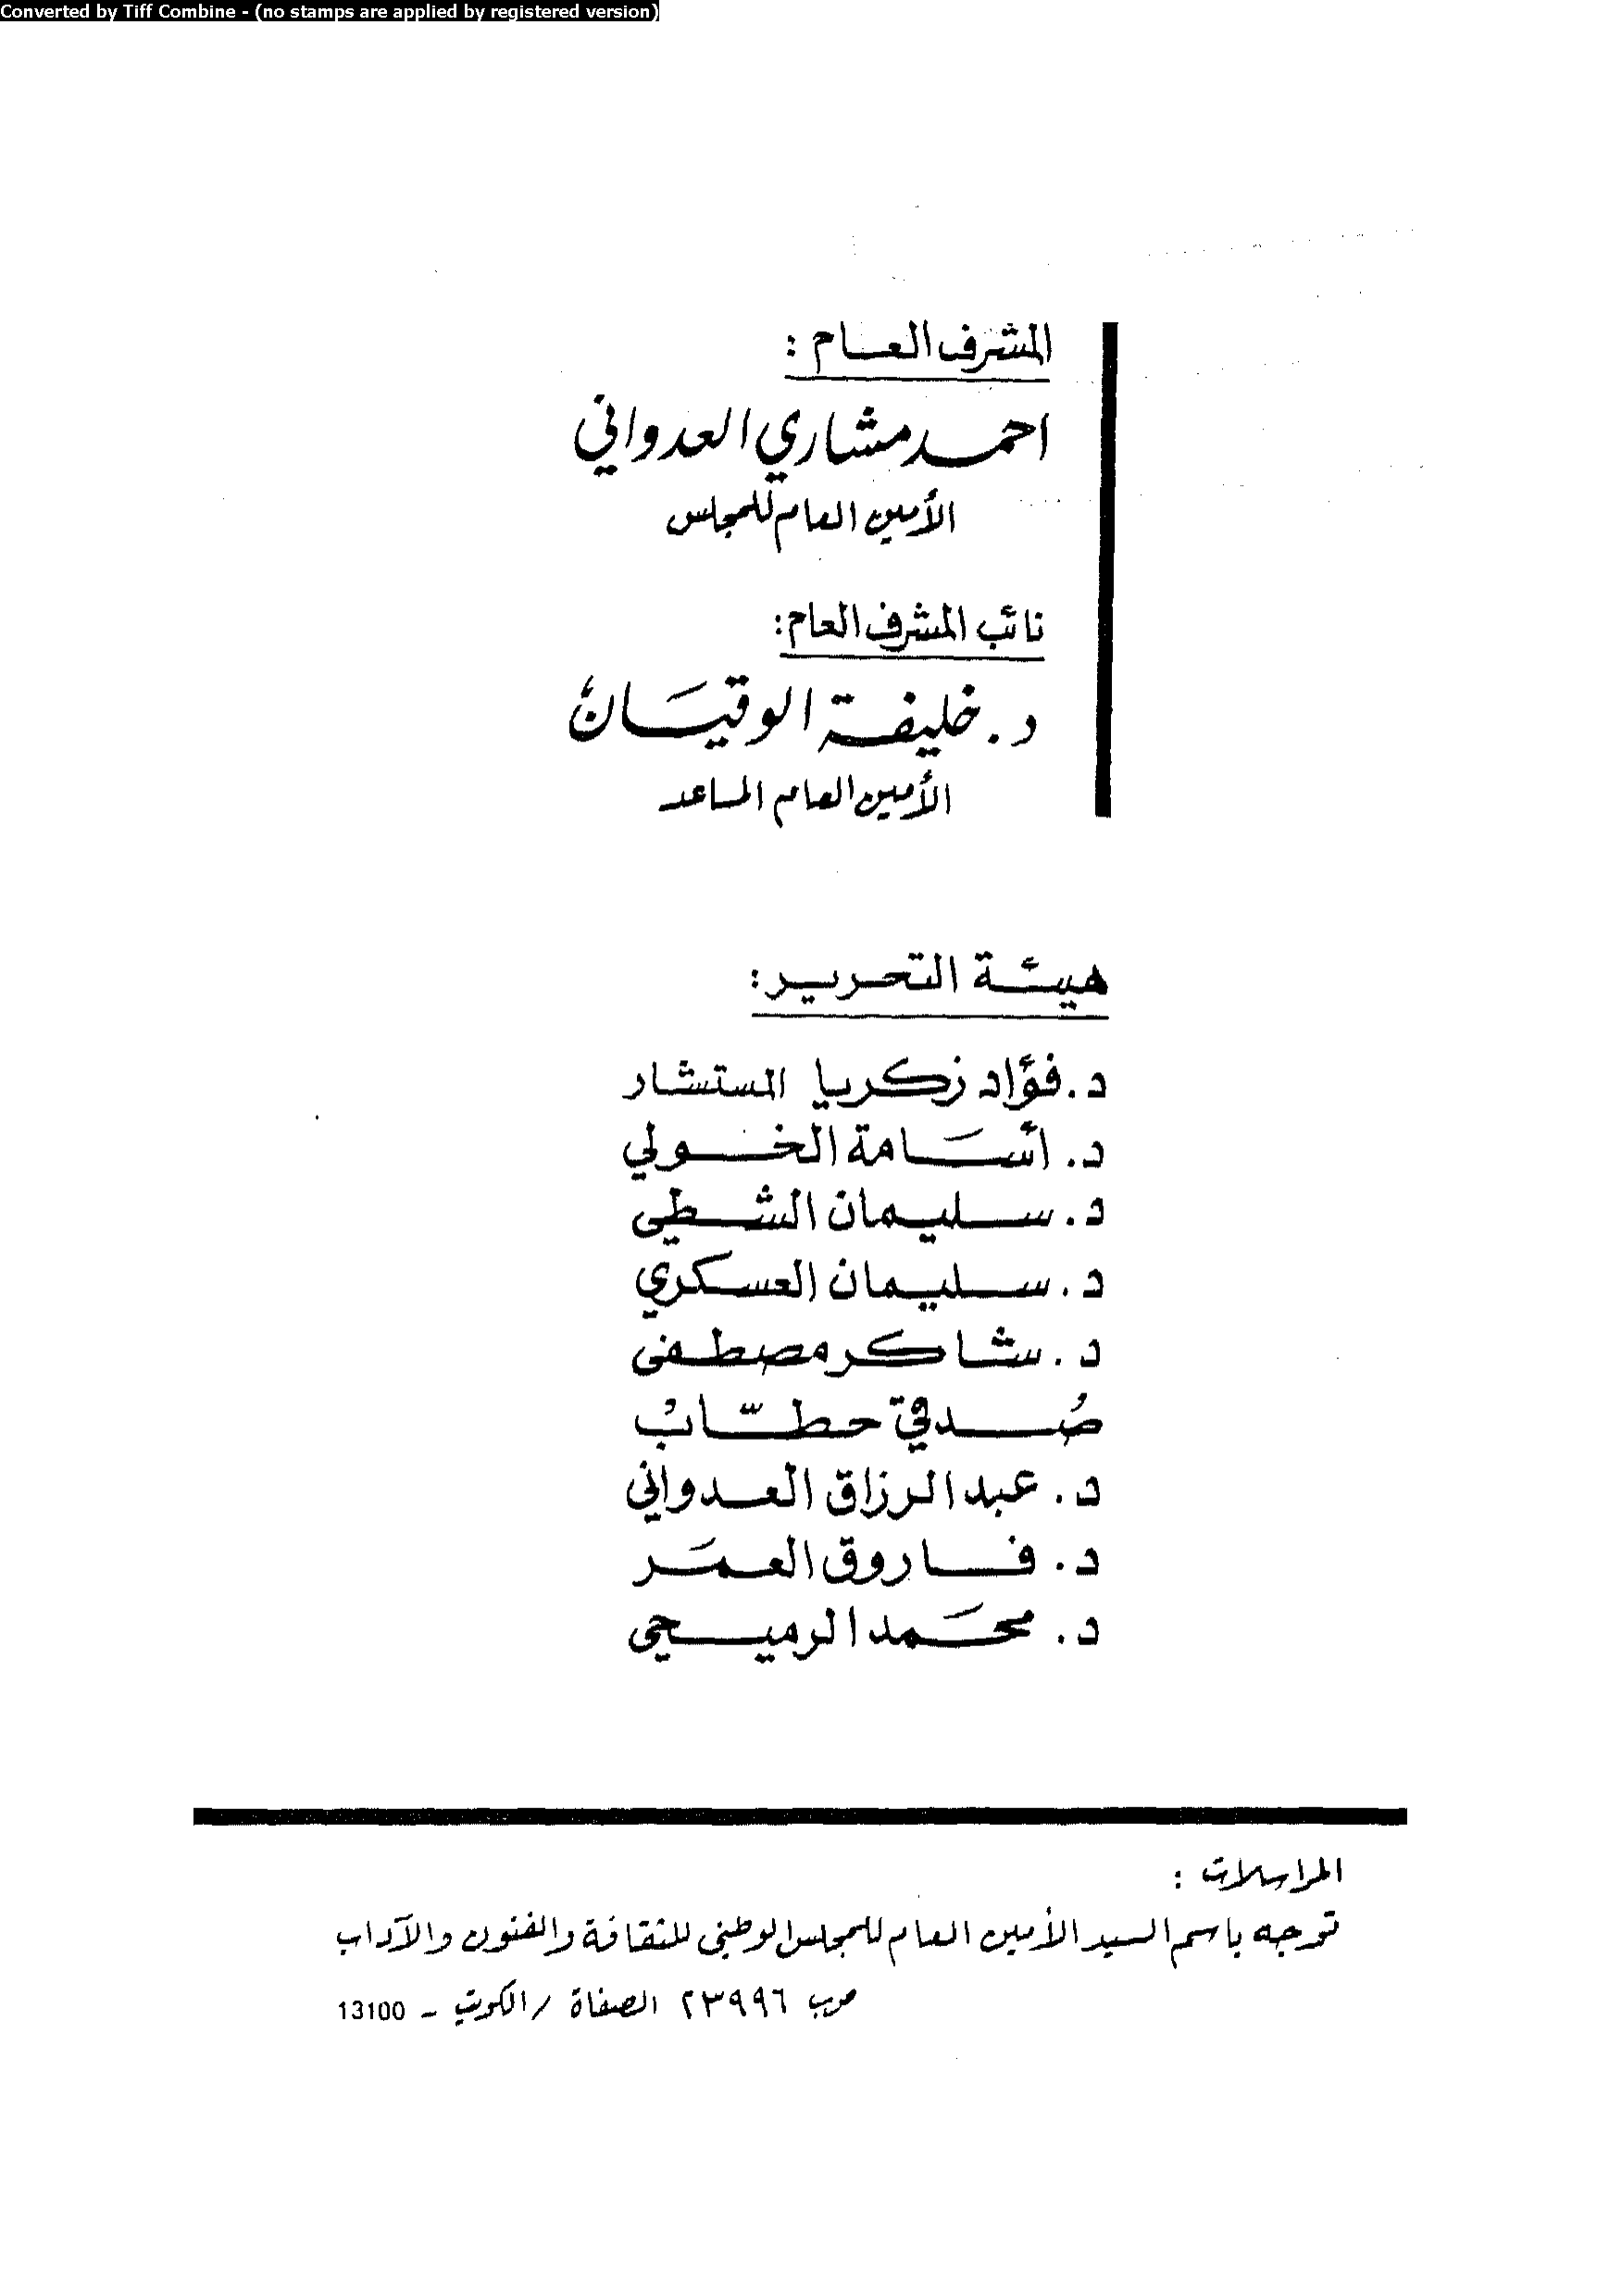 Converted by Tiff Combine - (no stamps are applied by registered version)
المشرف العام :
احمد مشاري العدواني
الأمين العام للمجلس
نائب المشرف العام:
د. خليفة الوقيان
الأمين العام المساعد
هيئة التحرير:
د. فؤاد زكريا المستشار
د. أسامة الخولي
د. سليمان الشطي
د. سليمان العسكري
د. شاكر مصطفى
صُدقي حطّاب
د. عبد الرزاق العدواني
د. فاروق العمَر
د. محمَد الرميحي
المراسلات :
توجه باسم السيد الأمين العام للمجلس الوطني للثقافة والفنون والآداب
صرب ٢٣٩٩٦ الصفاة / الكويت - 13100